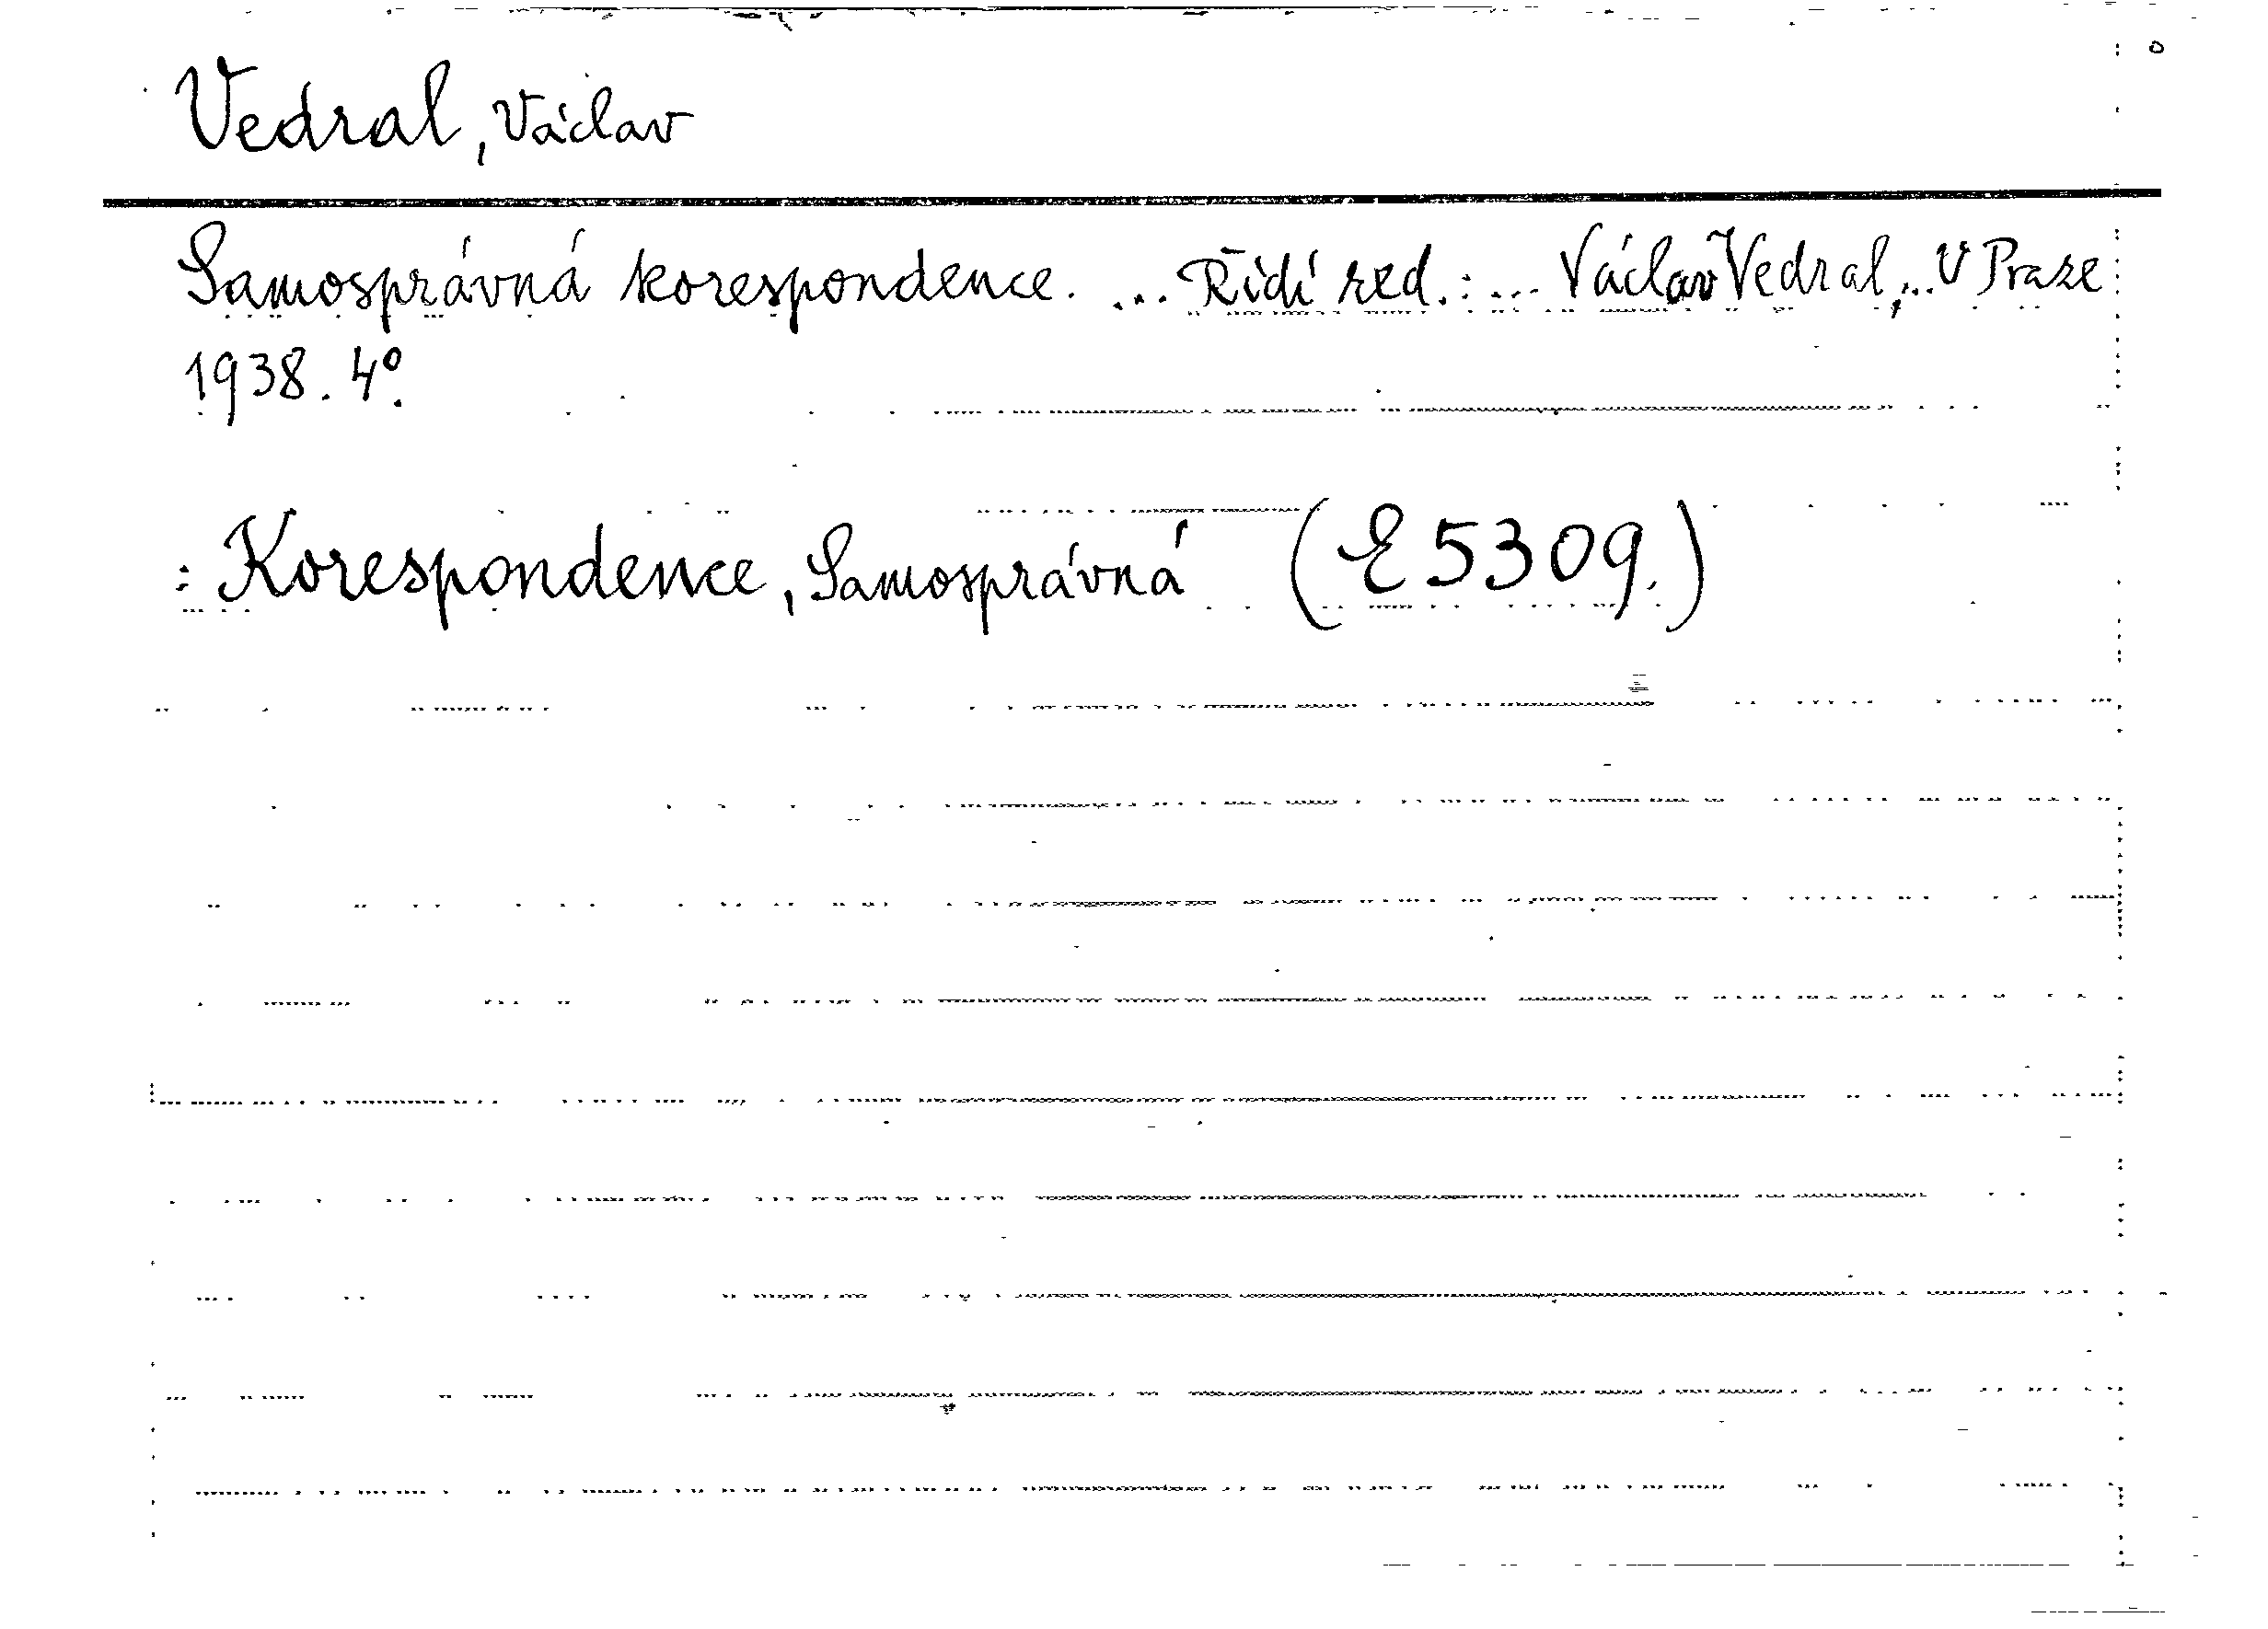 Vedral, Václav
Samosprávná korespondence. ... Řídí red.: ... Václav Vedral,... V Praze
1938. 4°.
: Korespondence, Samosprávná (E 5309.)